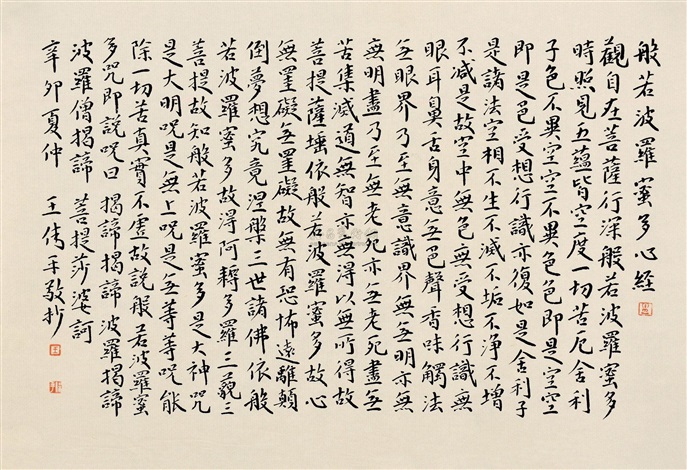 般若波羅蜜多心經
觀自在菩薩行深般若波羅蜜多
時照見五蘊皆空度一切苦厄舍利
子色不異空空不異色色即是空空
即是色受想行識亦復如是舍利子
是諸法空相不生不滅不垢不淨不增
不減是故空中無色無受想行識無
眼耳鼻舌身意无色聲香味觸法
无眼界乃至無意識界無无明亦無
無明盡乃至無老死亦无老死盡无
苦集滅道無智亦無得以無所得故
菩提薩埵依般若波羅蜜多故心
無罣礙无罣礙故無有恐怖遠離顛
倒夢想究竟涅槃三世諸佛依般
若波羅蜜多故得阿耨多羅三藐三
菩提故知般若波羅蜜多是大神咒
是大明咒是無上咒是无等等咒能
除一切苦真實不虛故説般若波羅蜜
多咒即説咒曰 揭諦揭諦波羅揭諦
波羅僧揭諦 菩提莎婆訶
辛卯夏仲 王傳平敬抄